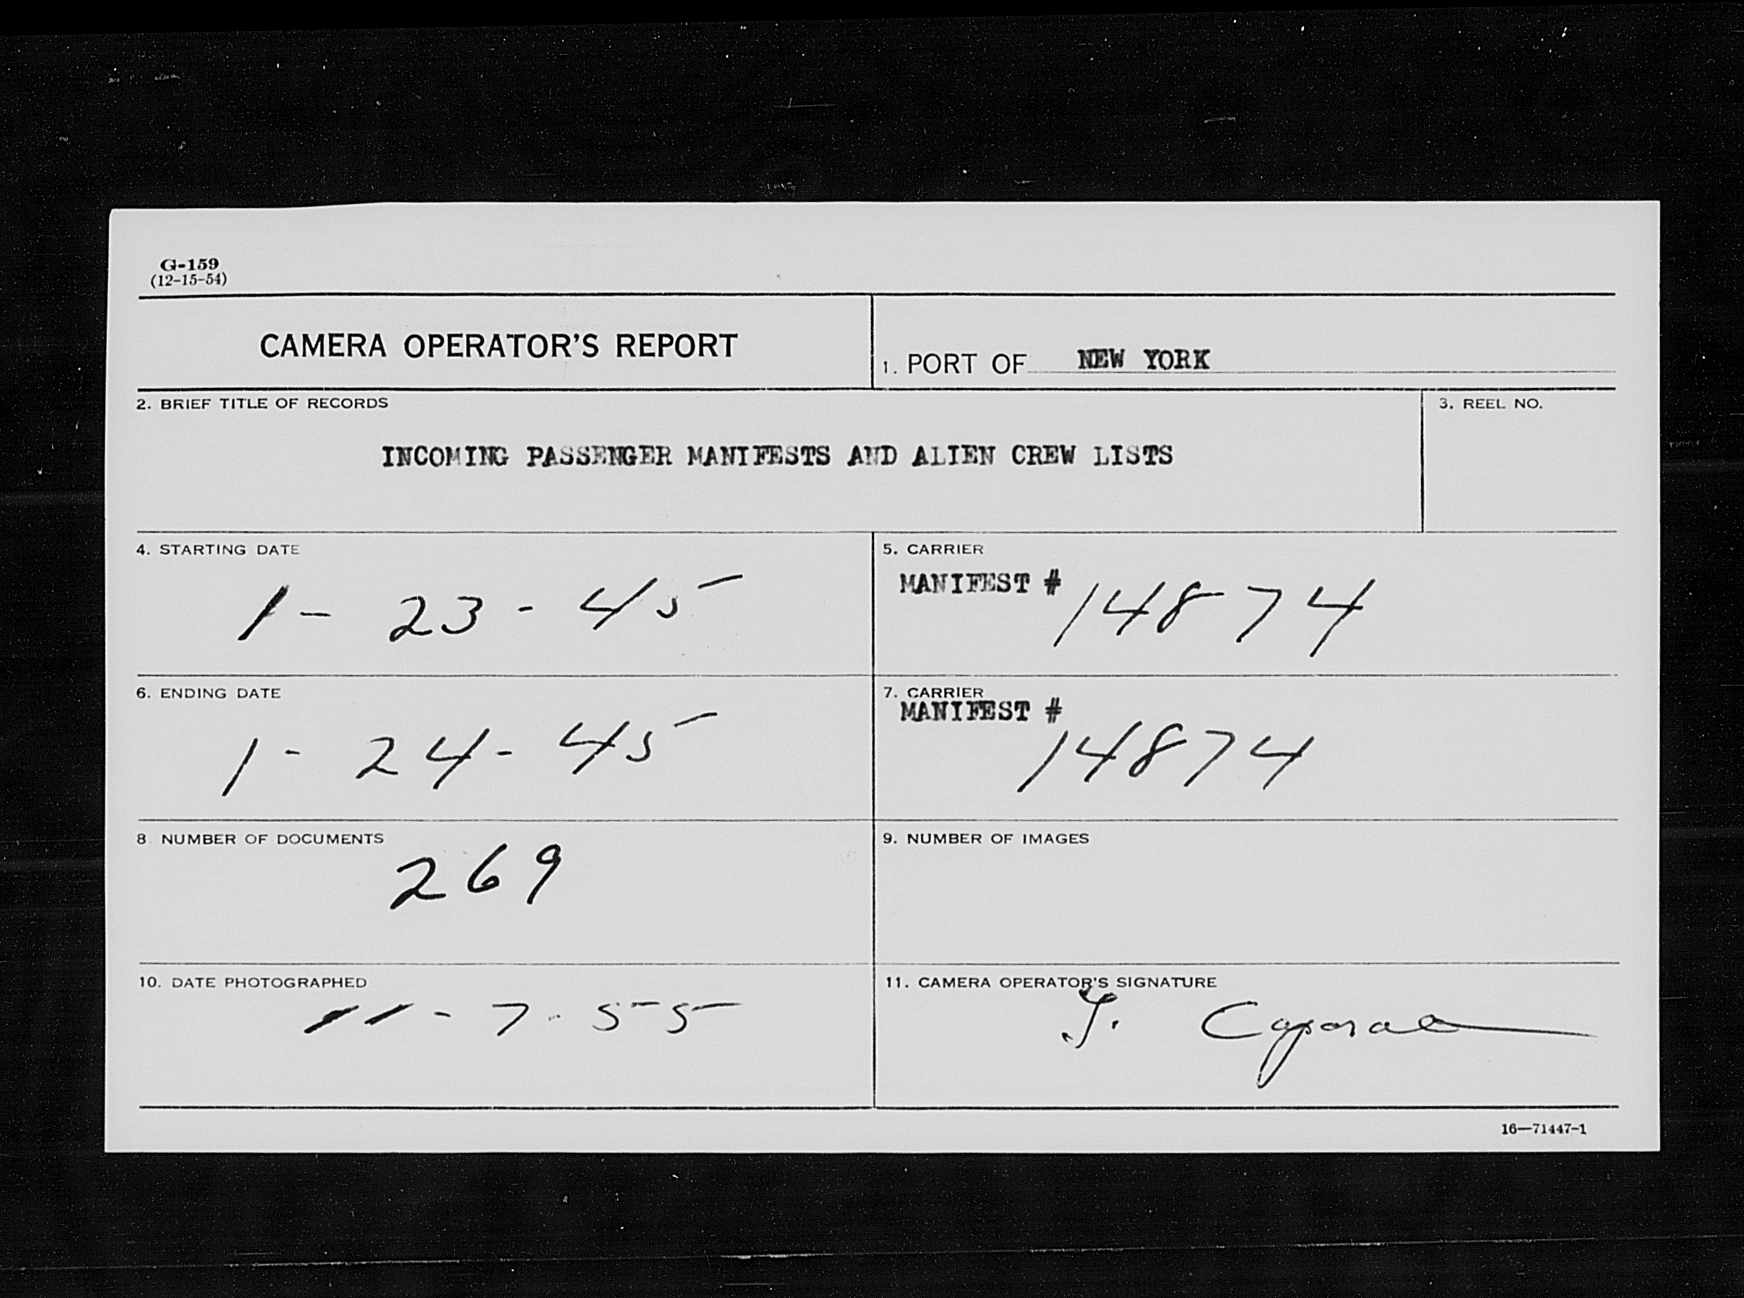 G-159
(12-15-54)
CAMERA OPERATOR'S REPORT
1. PORT OF NEW YORK
2. BRIEF TITLE OF RECORDS
3. REEL NO.
INCOMING PASSENGER MANIFESTS AND ALIEN CREW LISTS
4. STARTING DATE
1 - 23 - 45
5. CARRIER
MANIFEST # 14874
6. ENDING DATE
1 - 24 - 45
7. CARRIER
MANIFEST #
14874
8 NUMBER OF DOCUMENTS
269
9. NUMBER OF IMAGES
10. DATE PHOTOGRAPHED
11 - 7 - 55
11. CAMERA OPERATOR'S SIGNATURE
16—71447-1